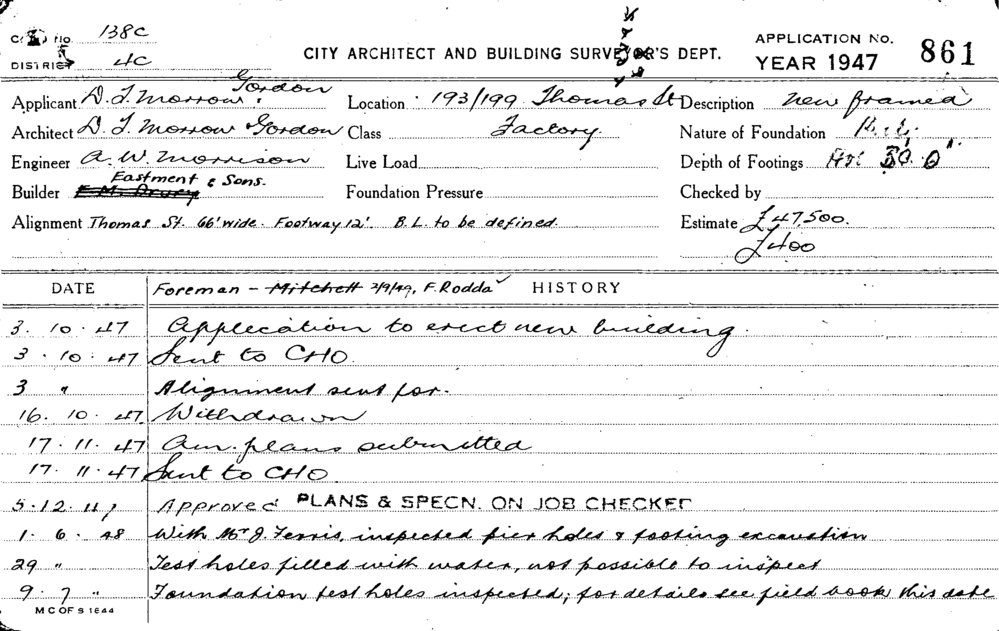 No. 138C
DISTRICT 4C
CITY ARCHITECT AND BUILDING SURVEYOR'S DEPT.
APPLICATION NO. 861
YEAR 1947
Applicant D. T. Morrow & Gordon Location 193/199 Thomas St Description New framed
Architect D. T. Morrow & Gordon Class Factory Nature of Foundation
Engineer A. W. Morrison Live Load Depth of Footings
Eastment & Sons.
Builder E. M. Drury Foundation Pressure Checked by
Alignment Thomas St. 66' wide. Footway 12'. B.L. to be defined. Estimate £47,500.
£400
DATE Foreman - Mitchett 2/9/49, F. Rodda HISTORY
3. 10. 47 Application to erect new building.
3. 10. 47 Sent to CHO.
3 " Alignment sent for.
16. 10. 47. Withdrawn
17. 11. 47 Am. plans submitted
17. 11. 47 Sent to CHO.
5. 12. 47 Approved PLANS & SPECN. ON JOB CHECKED
1. 6. 48 With Mr J. Ferris, inspected pier holes & footing excavation
29 " Test holes filled with water, not possible to inspect
9. 7 " Foundation test holes inspected; for details see field book this date
M C OF S 1644